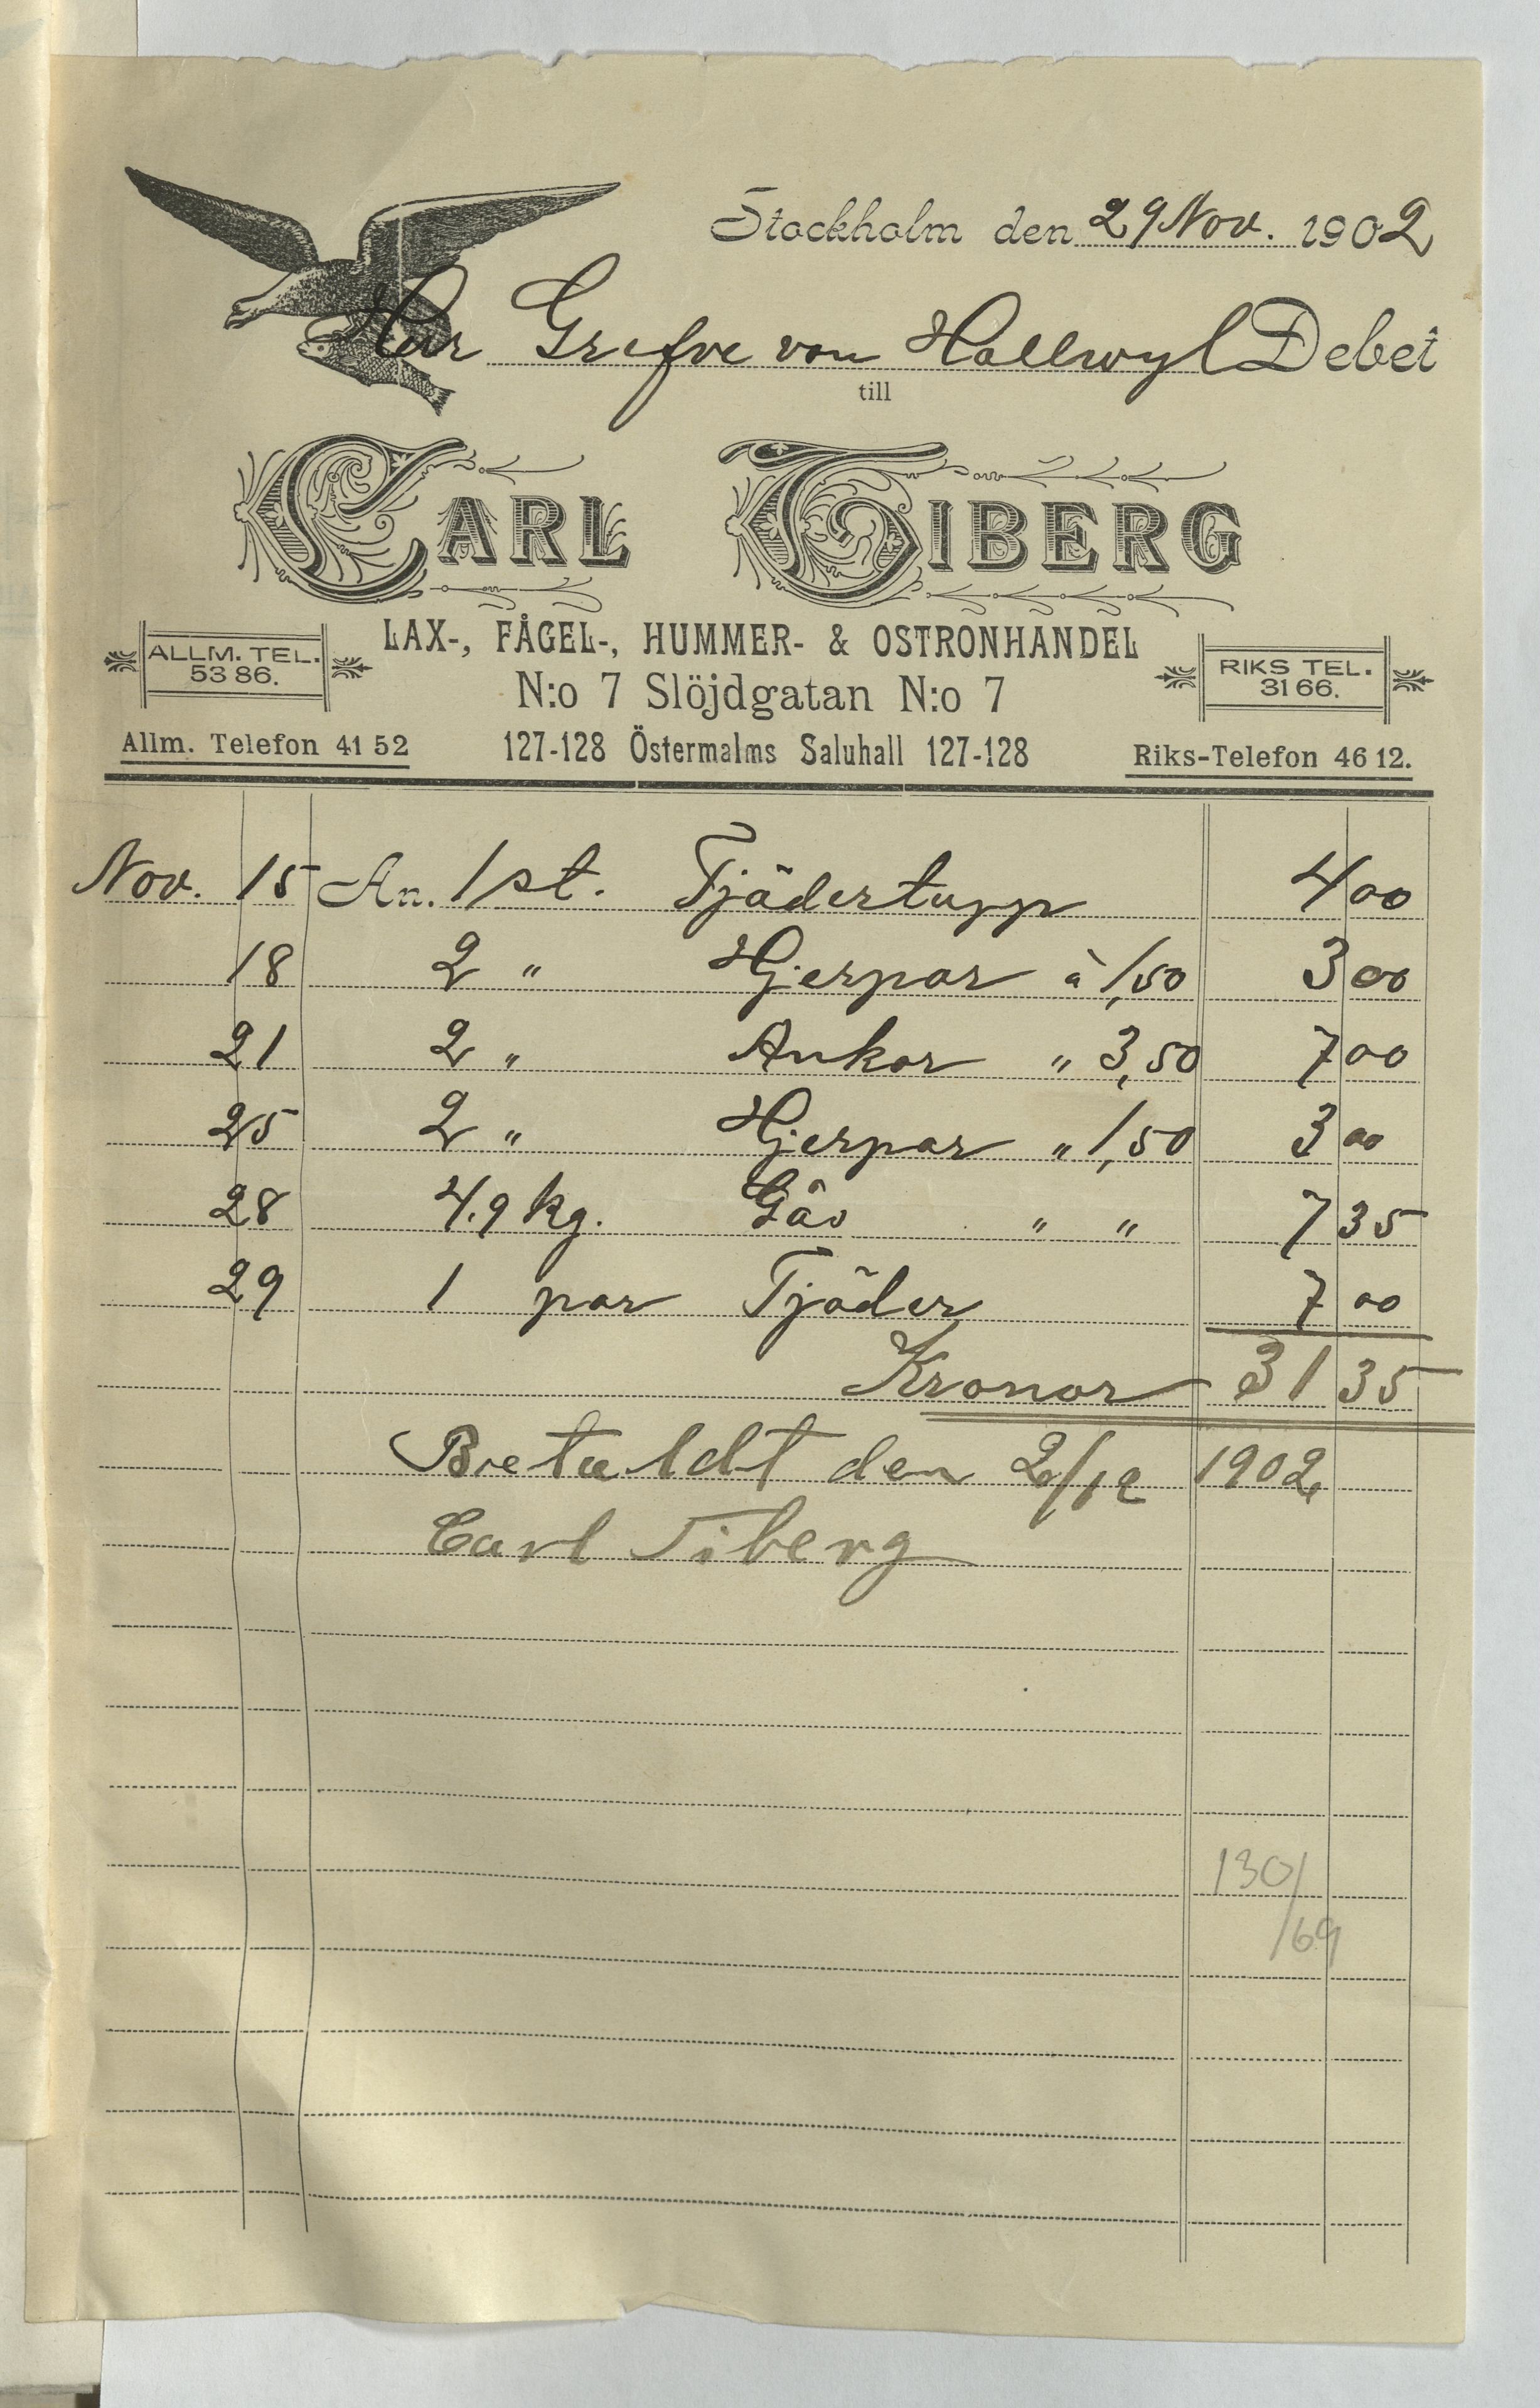 Stockholm den 29 Nov. 1902
Herr Grefve von Hallwyl Debet
till
CARL TIBERG
LAX-, FÅGEL-, HUMMER- & OSTRONHANDEL
ALLM. TEL. 53 86.
N:o 7 Slöjdgatan N:o 7
RIKS TEL. 31 66.
Allm. Telefon 41 52
127-128 Östermalms Saluhall 127-128
Riks-Telefon 46 12.
Nov. 15 An. 1 st. Tjädertupp 4 00
18 2 " Hjerpar à 1,50 3 00
21 2 " Ankor " 3,50 7 00
25 2 " Hjerpar " 1,50 3 00
28 4.9 kg. Gås " " 7 35
29 1 par Tjäder 7 00
Kronor 31 35
Betaldt den 2/12 1902
Carl Tiberg
130/
/69